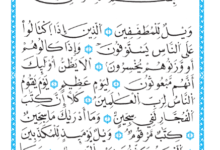 وَيْلٌ لِّلْمُطَفِّفِينَ ۝ الَّذِينَ إِذَا اكْتَالُوا
عَلَى النَّاسِ يَسْتَوْفُونَ ۝ وَإِذَا كَالُوهُمْ
أَو وَّزَنُوهُمْ يُخْسِرُونَ ۝ أَلَا يَظُنُّ أُولَٰئِكَ
أَنَّهُم مَّبْعُوثُونَ ۝ لِيَوْمٍ عَظِيمٍ ۝ يَوْمَ يَقُومُ
النَّاسُ لِرَبِّ الْعَالَمِينَ ۝ كَلَّا إِنَّ كِتَابَ
الْفُجَّارِ لَفِي سِجِّينٍ ۝ وَمَا أَدْرَاكَ مَا سِجِّينٌ
۝ كِتَابٌ مَّرْقُومٌ ۝ وَيْلٌ يَوْمَئِذٍ لِّلْمُكَذِّبِينَ